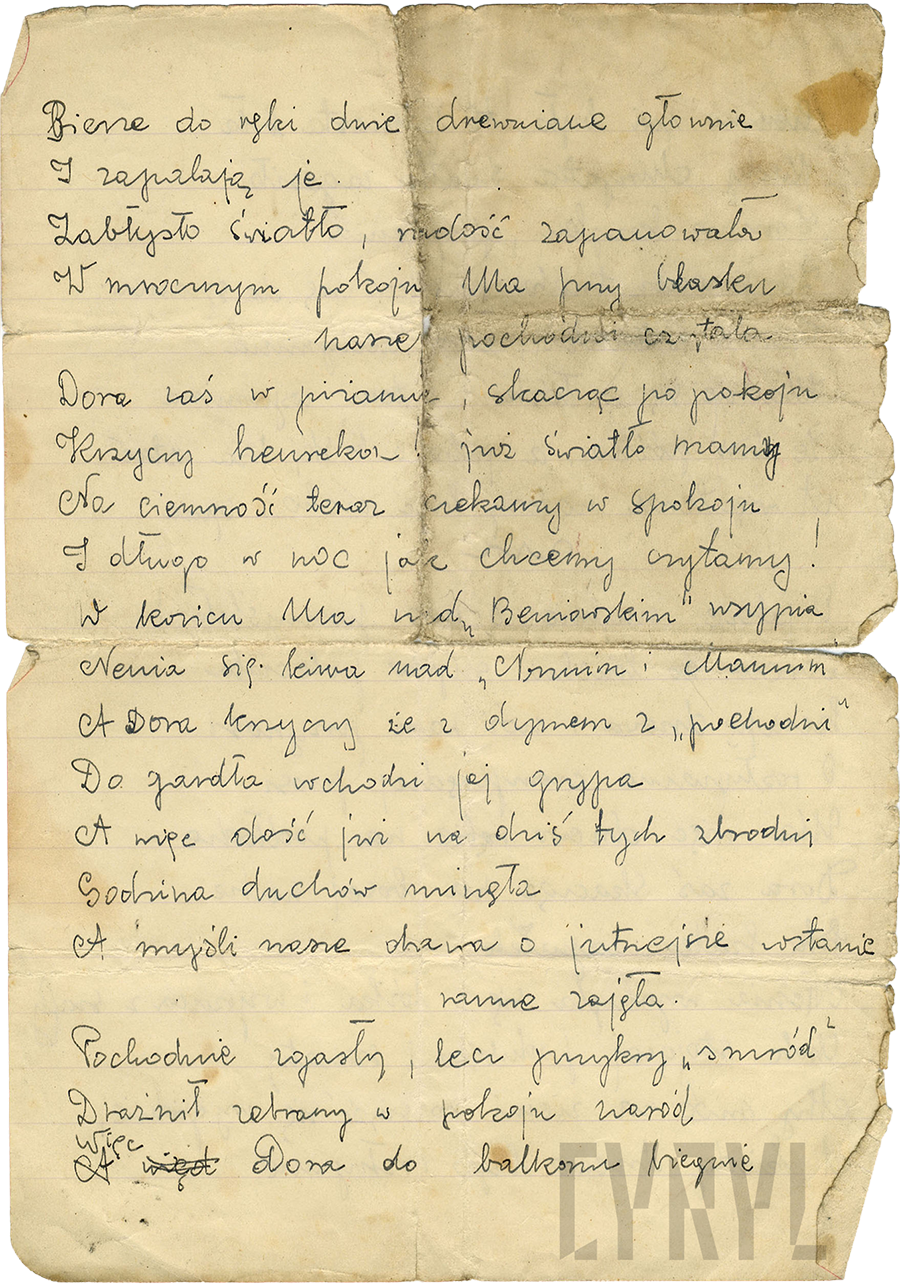 Bierze do ręki dwie drewniane głownie
I zapalają je.
Zabłysło światło, radość zapanowała
W mrocznym pokoju Ula przy blasku
naszej pochodni czytała
Dora zaś w piżamie, skacząc po pokoju
Krzyczy heureka! już światło mamy
Na ciemność teraz czekamy w spokoju
I długo w noc jak chcemy czytamy!
W końcu Ula nad „Beniowskim" usypia
Nenia się kiwa nad „
A Dora krzyczy że z dymem z „pochodni"
Do gardła wchodzi jej grypa
A więc dość już na dziś tych zbrodni
Godzina duchów minęła
A myśli nasze drzwa o jutrzejsze wstanie
ranne zajęła.
Pochodnie zgasły, lecz przykry „smród"
Drażnił zebrany w pokoju naród
Więc
Dora do balkonu biegnie
CYRYL